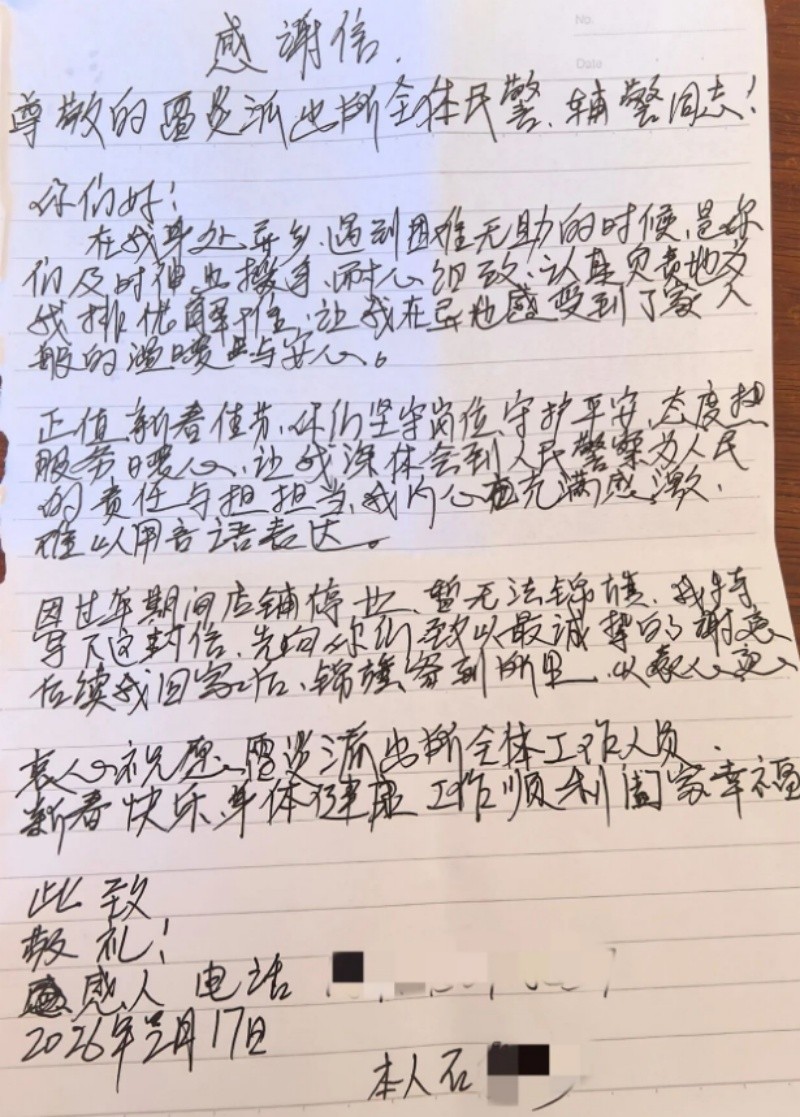 No.
Date
感谢信.
尊敬的派出所全体民警、辅警同志!
你们好!
在我身处异乡、遇到困难无助的时候,是你
们及时伸出援手、耐心细致、认真负责地为
我排优解难,让我在异地感受到了家人
般的温暖与安心。
正值新春佳节,你们坚守岗位、守护平安,态度热
服务暖心,让我深体会到人民警察为人民
的责任与担担当,我内心充满感激,
难以用言语表达。
因过年期间店铺停业,暂无法锦旗,我特
写下这封信,先向你们致以最诚挚的谢意
后续我回家后,锦旗寄到所里,以表心意
衷心祝愿派出所全体工作人员.
新春快乐、身体健康 工作顺利 阖家幸福
此致
敬礼!
感人 电话
2026年2月17日
本人石